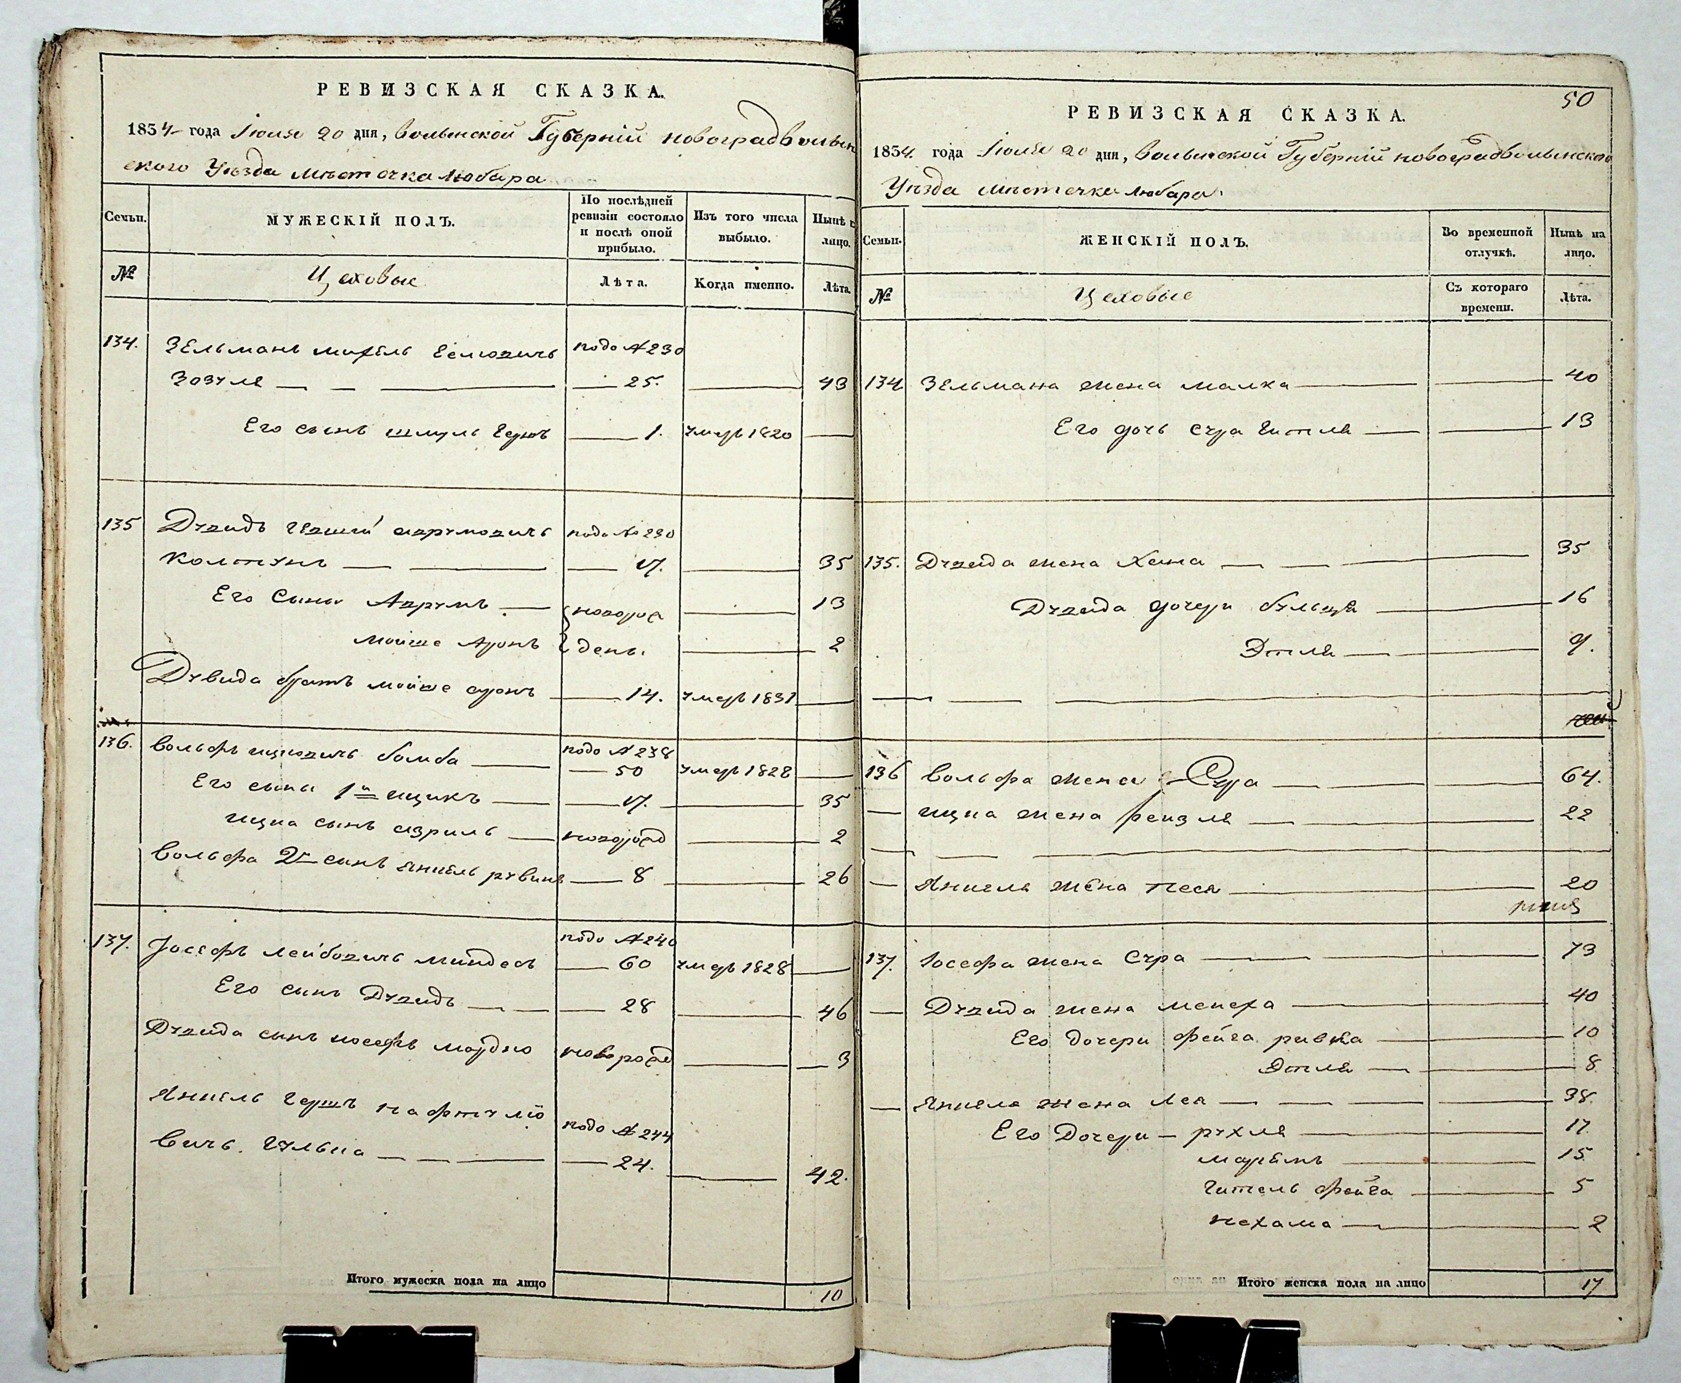 РЕВИЗСКАЯ СКАЗКА.
1854 года Июля 20 дня, Волынской Губерніи Новоградволын
скаго Уѣзда мѣстечка Любара
Семьи. МУЖЕСКІЙ ПОЛЪ. По послѣдней ревизіи состояло и послѣ оной прибыло. Изъ того числа выбыло. Нынѣ н лицо.
№ Цеховые Лѣта. Когда именно. Лѣта.
134. Зельманъ подо №230
25. 43
Его сынъ шмуль Герш 1. умеръ 1820
135 Дувидъ аврумовичъ подо №230
Колтунъ 17. 35
Его Сыны Аврумъ новорож 13
мойше Аронъ день. 2
Дувида братъ мойше аронъ 14. умеръ 1831
136. Вольфъ ицковичъ бомба подо №238
50 умеръ 1828
Его сыны 1й ицикъ 17. 35
ицка сынъ азриль новорожд 2
Вольфа 2й сынъ янкель рувинъ 8 26
137. Іосефъ лейбовичъ миндесъ подо №240
60 умеръ 1828
Его сынъ Дувидъ 28 46
Дувида сынъ иосефъ мордко новорожд 3
Янкель Гершъ нафтуліо подо №244
вичъ. 24. 42.
Итого мужеска пола на лицо 10
50
РЕВИЗСКАЯ СКАЗКА.
1854. года Июля 20 дня, Волынской Губерніи Новоградволынскаго
Уѣзда мѣстечка Любара.
Семьи. ЖЕНСКІЙ ПОЛЪ. Во временной отлучкѣ. Нынѣ на лицо.
№ Цеховые Съ котораго времени. Лѣта.
134 Зельмана жена малка 40
Его дочь сура гитля 13
135. Дувида жена Хана 35
Дувида дочери 16
Этля 9.
136 Вольфа жена Сура 64.
ицка жена рейзля 22
Янкеля жена Песя 20
137. Іосефа жена Сура 73
Дувида жена менеха 40
Его дочери фейга ривка 10
Этля 8
Янкеля жена Лея 38.
Его Дочери рухля 17
марьямъ 15
Гитель фейга 5
нехама 2
Итого женска пола на лицо 17